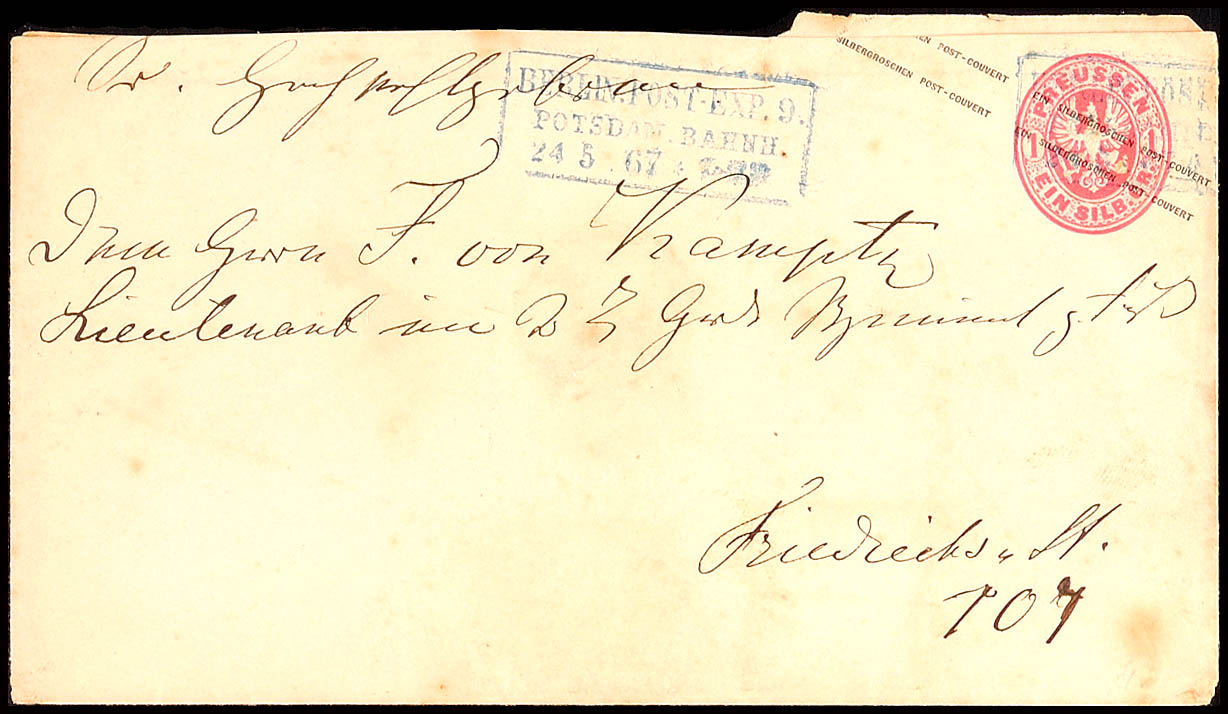 Sr. Hochwohlgeboren
BERLIN.POST-EXP. 9.
POTSDAM. BAHNH.
24 5 67
SILBERGROSCHEN POST-COUVERT
POST-COUVERT
EIN SILBERGROSCHEN POST-COUVERT
EIN SILBERGROSCHEN POST-COUVERT
PREUSSEN
1 1
EIN SILB.GR.
Dem Herrn F. von Kamptz
Lieutenant im 2 Garde Regiment z. F.
Friedrichs„ St.
107